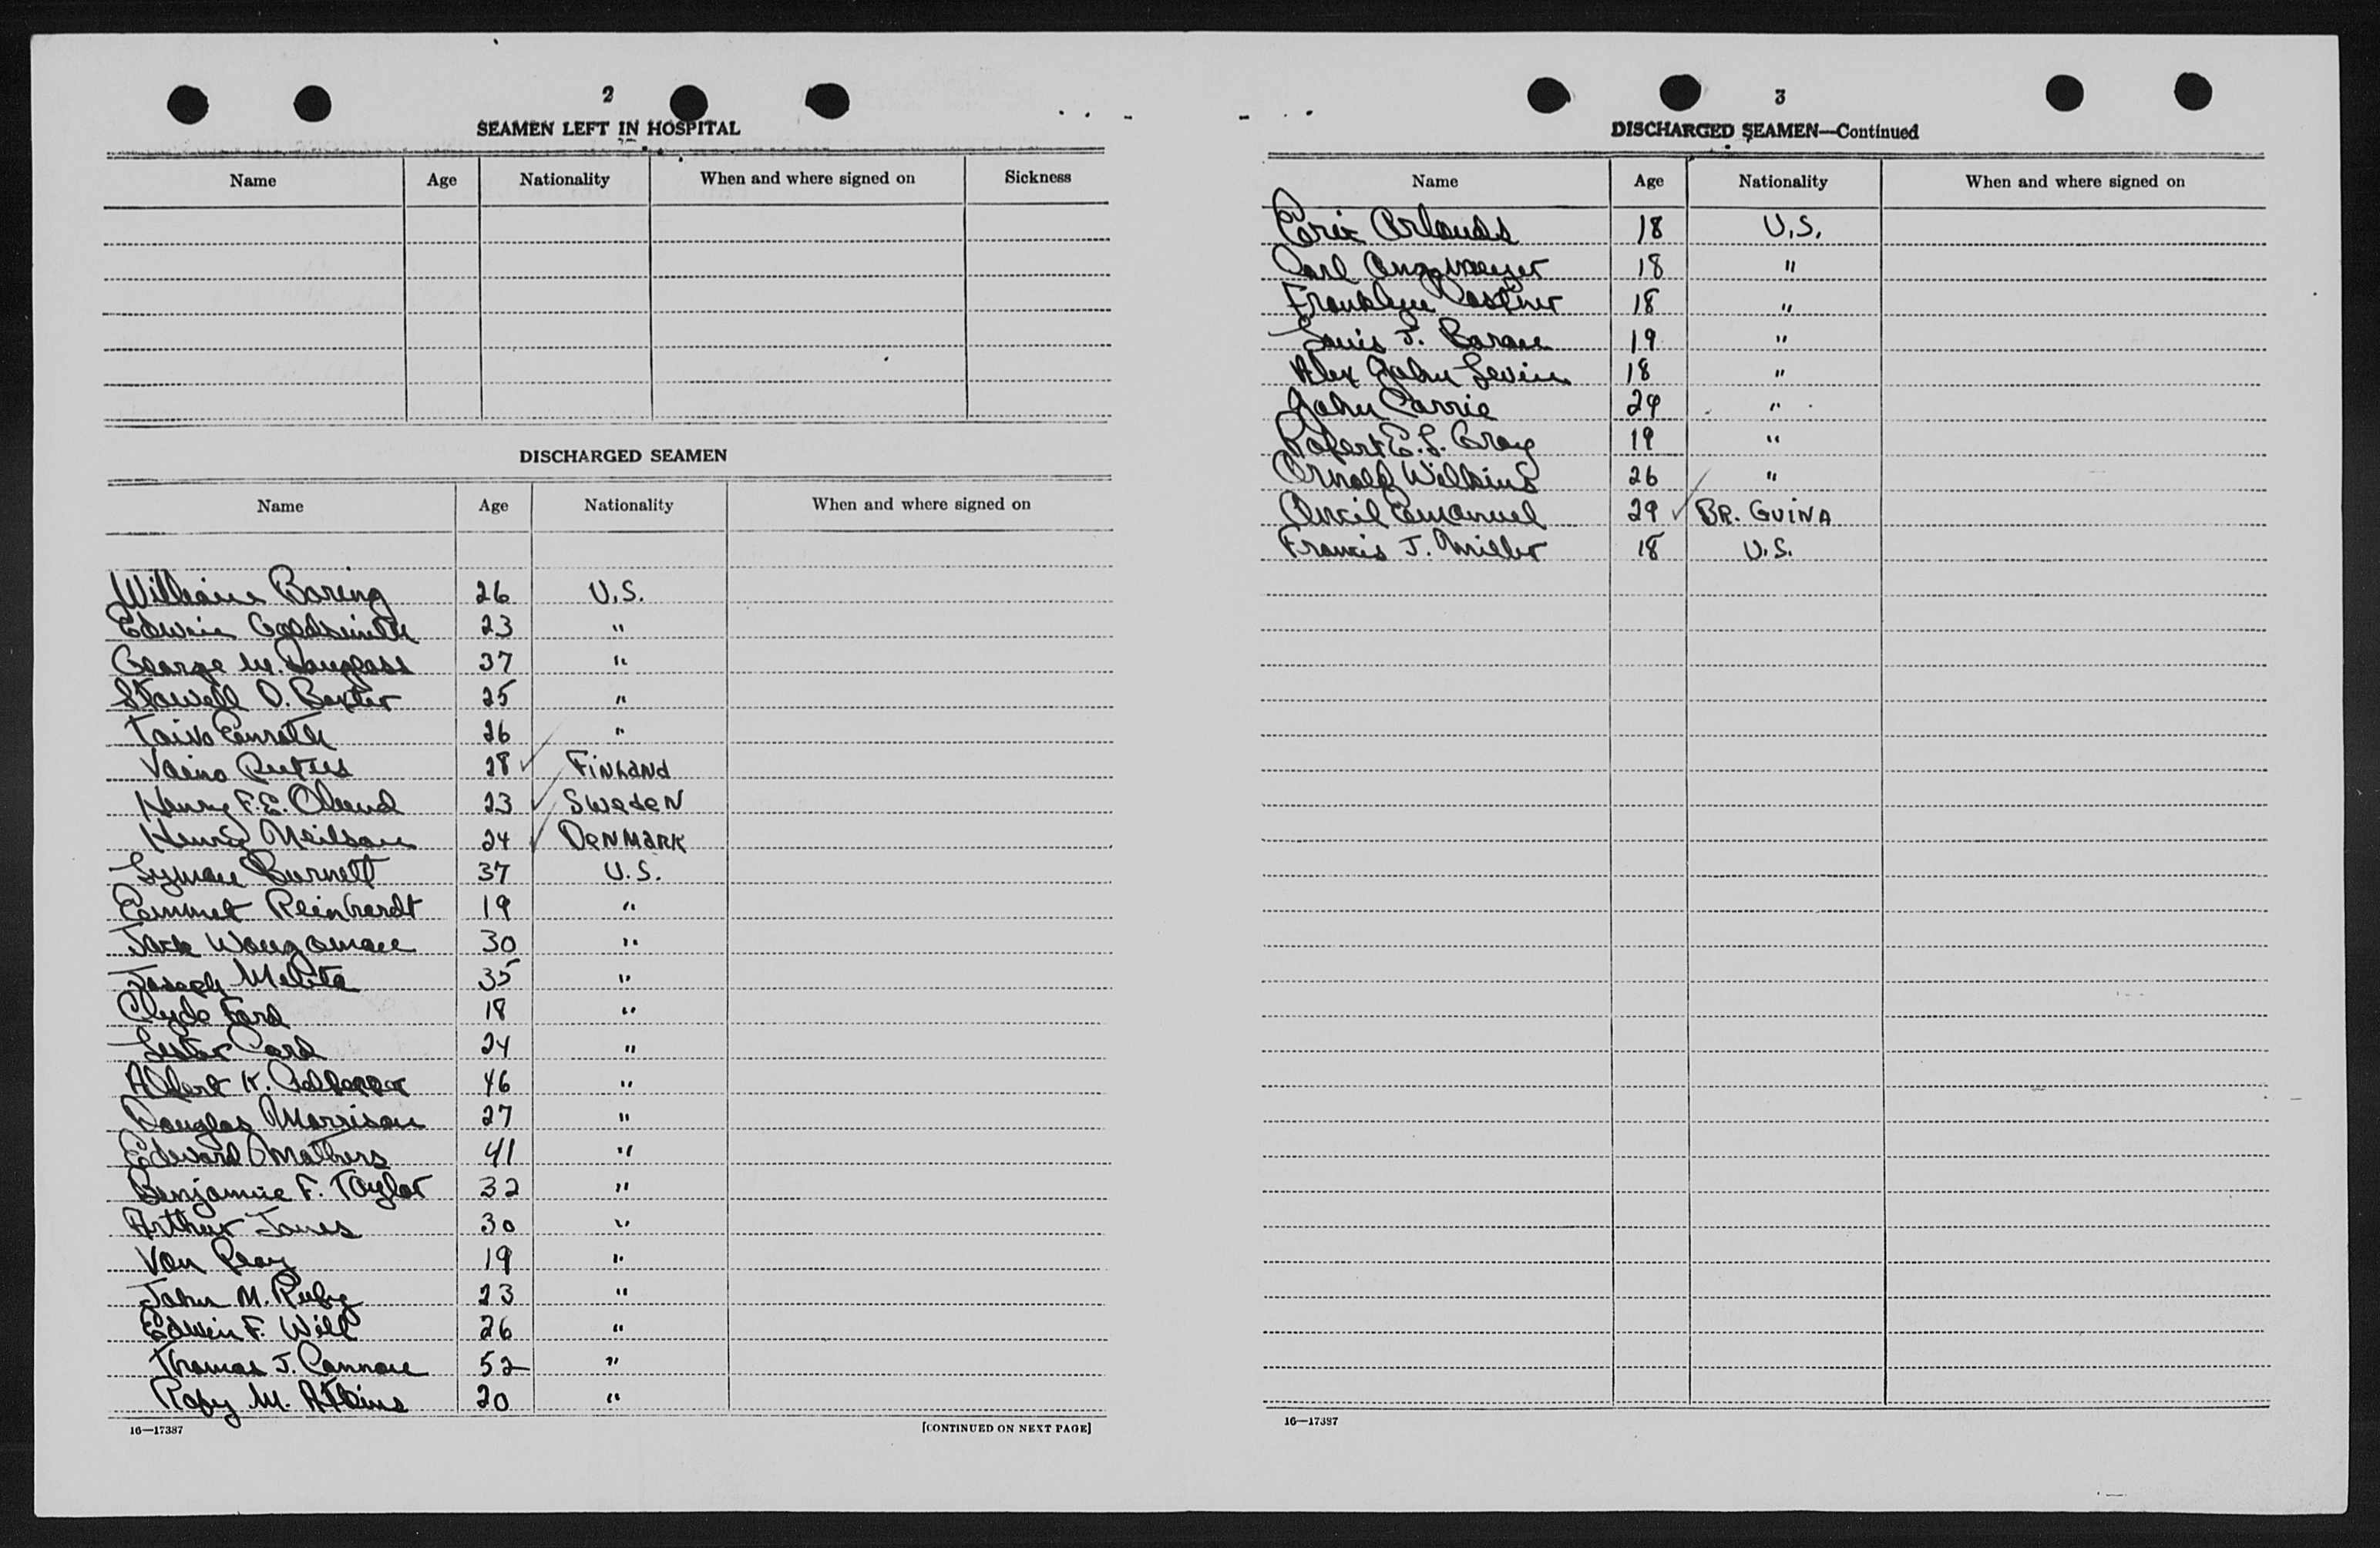 2
SEAMEN LEFT IN HOSPITAL
Name Age Nationality When and where signed on Sickness
DISCHARGED SEAMEN
Name Age Nationality When and where signed on
William Boring 26 U.S.
Edwin Goldsmith 23 "
George M. Douglass 37 "
Stowell O. Baxter 25 "
Toivo Enroth 26 "
Vaino 28 ✓ Finland
Henry F.E. 23 ✓ Sweden
Neilson 24 ✓ Denmark
Lyman Burnett 37 U.S.
Emmet Reinhardt 19 "
Jack 30 "
Joseph 35 "
Clyde Ford 18 "
Lester Card 24 "
Albert K. Culpepper 46 "
Douglas Morrison 27 "
Edward Mathers 41 "
Benjamin F. Taylor 32 "
Arthur Jones 30 "
Van 19 "
John M. Ruby 23 "
Edwin F. Will 26 "
Thomas J. Cannon 52 "
Roby M. Atkins 20 "
16—17387 [CONTINUED ON NEXT PAGE]
3
DISCHARGED SEAMEN—Continued
Name Age Nationality When and where signed on
18 U.S.
Carl 18 "
Franklyn 18 "
Louis 19 "
Alex John Levin 18 "
John Carrie 24 "
Robert E. L. Gray 19 "
Arnold Wilkins 26 "
Emanuel 29 ✓ BR. GUINA
Francis J. Miller 18 U.S.
16—17387